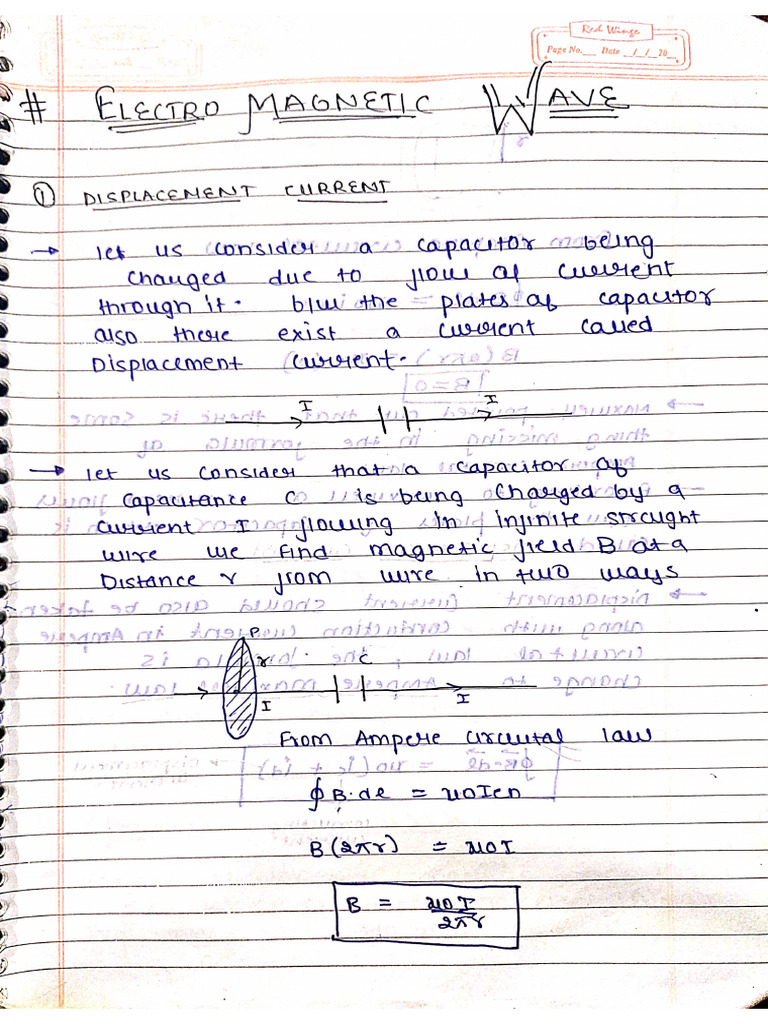 Red Wings
Page No.___ Date __/__/20__
# ELECTRO MAGNETIC WAVE
① DISPLACEMENT CURRENT
→ let us consider a capacitor being
charged due to flow of current
through it. b/w the plates of capacitor
also there exist a current called
Displacement current.
I I
→ let us consider that a capacitor of
capacitance C is being charged by a
current I flowing in infinite straught
wire we find magnetic field B at a
Distance r from wire in two ways
P
r C
I I
From Ampere circuital law
∮ B.dl = μ0Ien
B(2πr) = μ0I
B = μ0I / 2πr